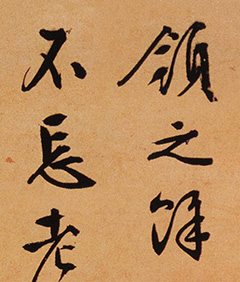 領之餘
不忘老